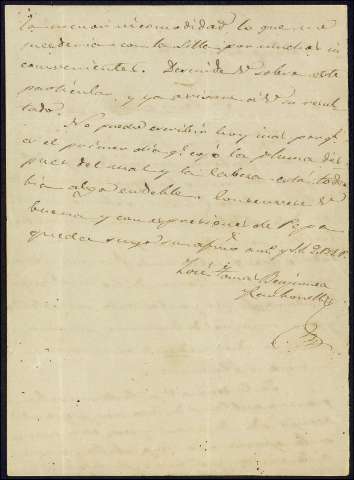 la menor incomodidad, lo que no
sucederia con la Silla por muchos in
convenientes. Decida V. sobre este
particular, y ya avisaré á V. su resul
tado.
No puedo escribir hoy mas porq.e
es el primer dia q.e cojo la pluma des
pues del mal y la cabeza está toda
bia algo endeble. Conservese V.
bueno y con expresiones de Pepa
queda suyo su afmo am.o y S. S. Q. B. S. M.
José Tomas